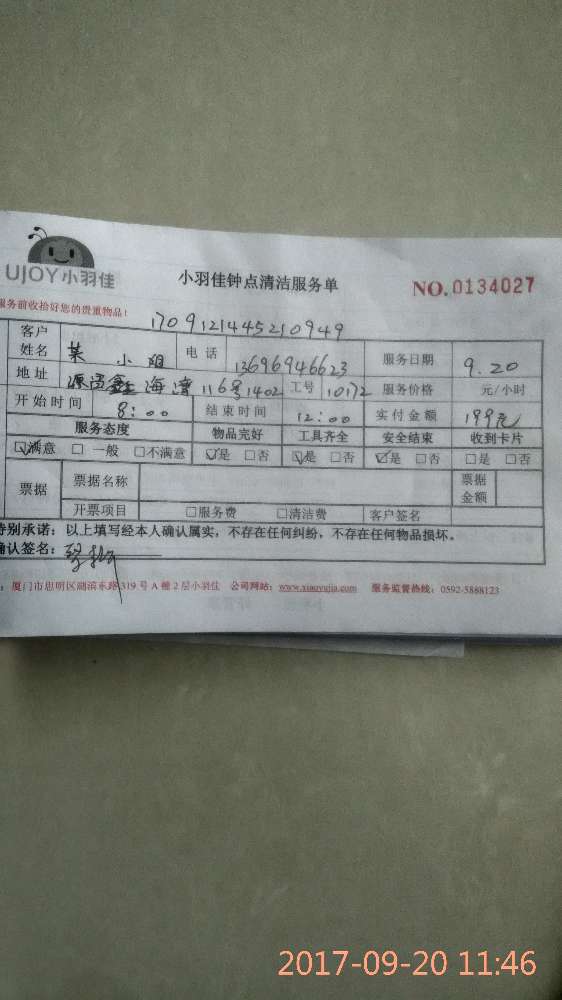 UJOY小羽佳
小羽佳钟点清洁服务单
NO.0134027
服务前收拾好您的贵重物品!
1709121445210949
客户姓名 某小姐 电话 13696946623 服务日期 9.20
地址 源昌鑫海湾116号1402 工号 10172 服务价格 元/小时
开始时间 8:00 结束时间 12:00 实付金额 199元
服务态度 物品完好 工具齐全 安全结束 收到卡片
☑满意 □一般 □不满意 ☑是 □否 ☑是 □否 ☑是 □否 □是 □否
票据 票据名称 票据金额
开票项目 □服务费 □清洁费 客户签名
特别承诺:以上填写经本人确认属实,不存在任何纠纷,不存在任何物品损坏。
确认签名:
:厦门市思明区湖滨东路319号A幢2层小羽佳 公司网站:www.xiaoyujia.com 服务监督热线:0592-5888123
2017-09-20 11:46